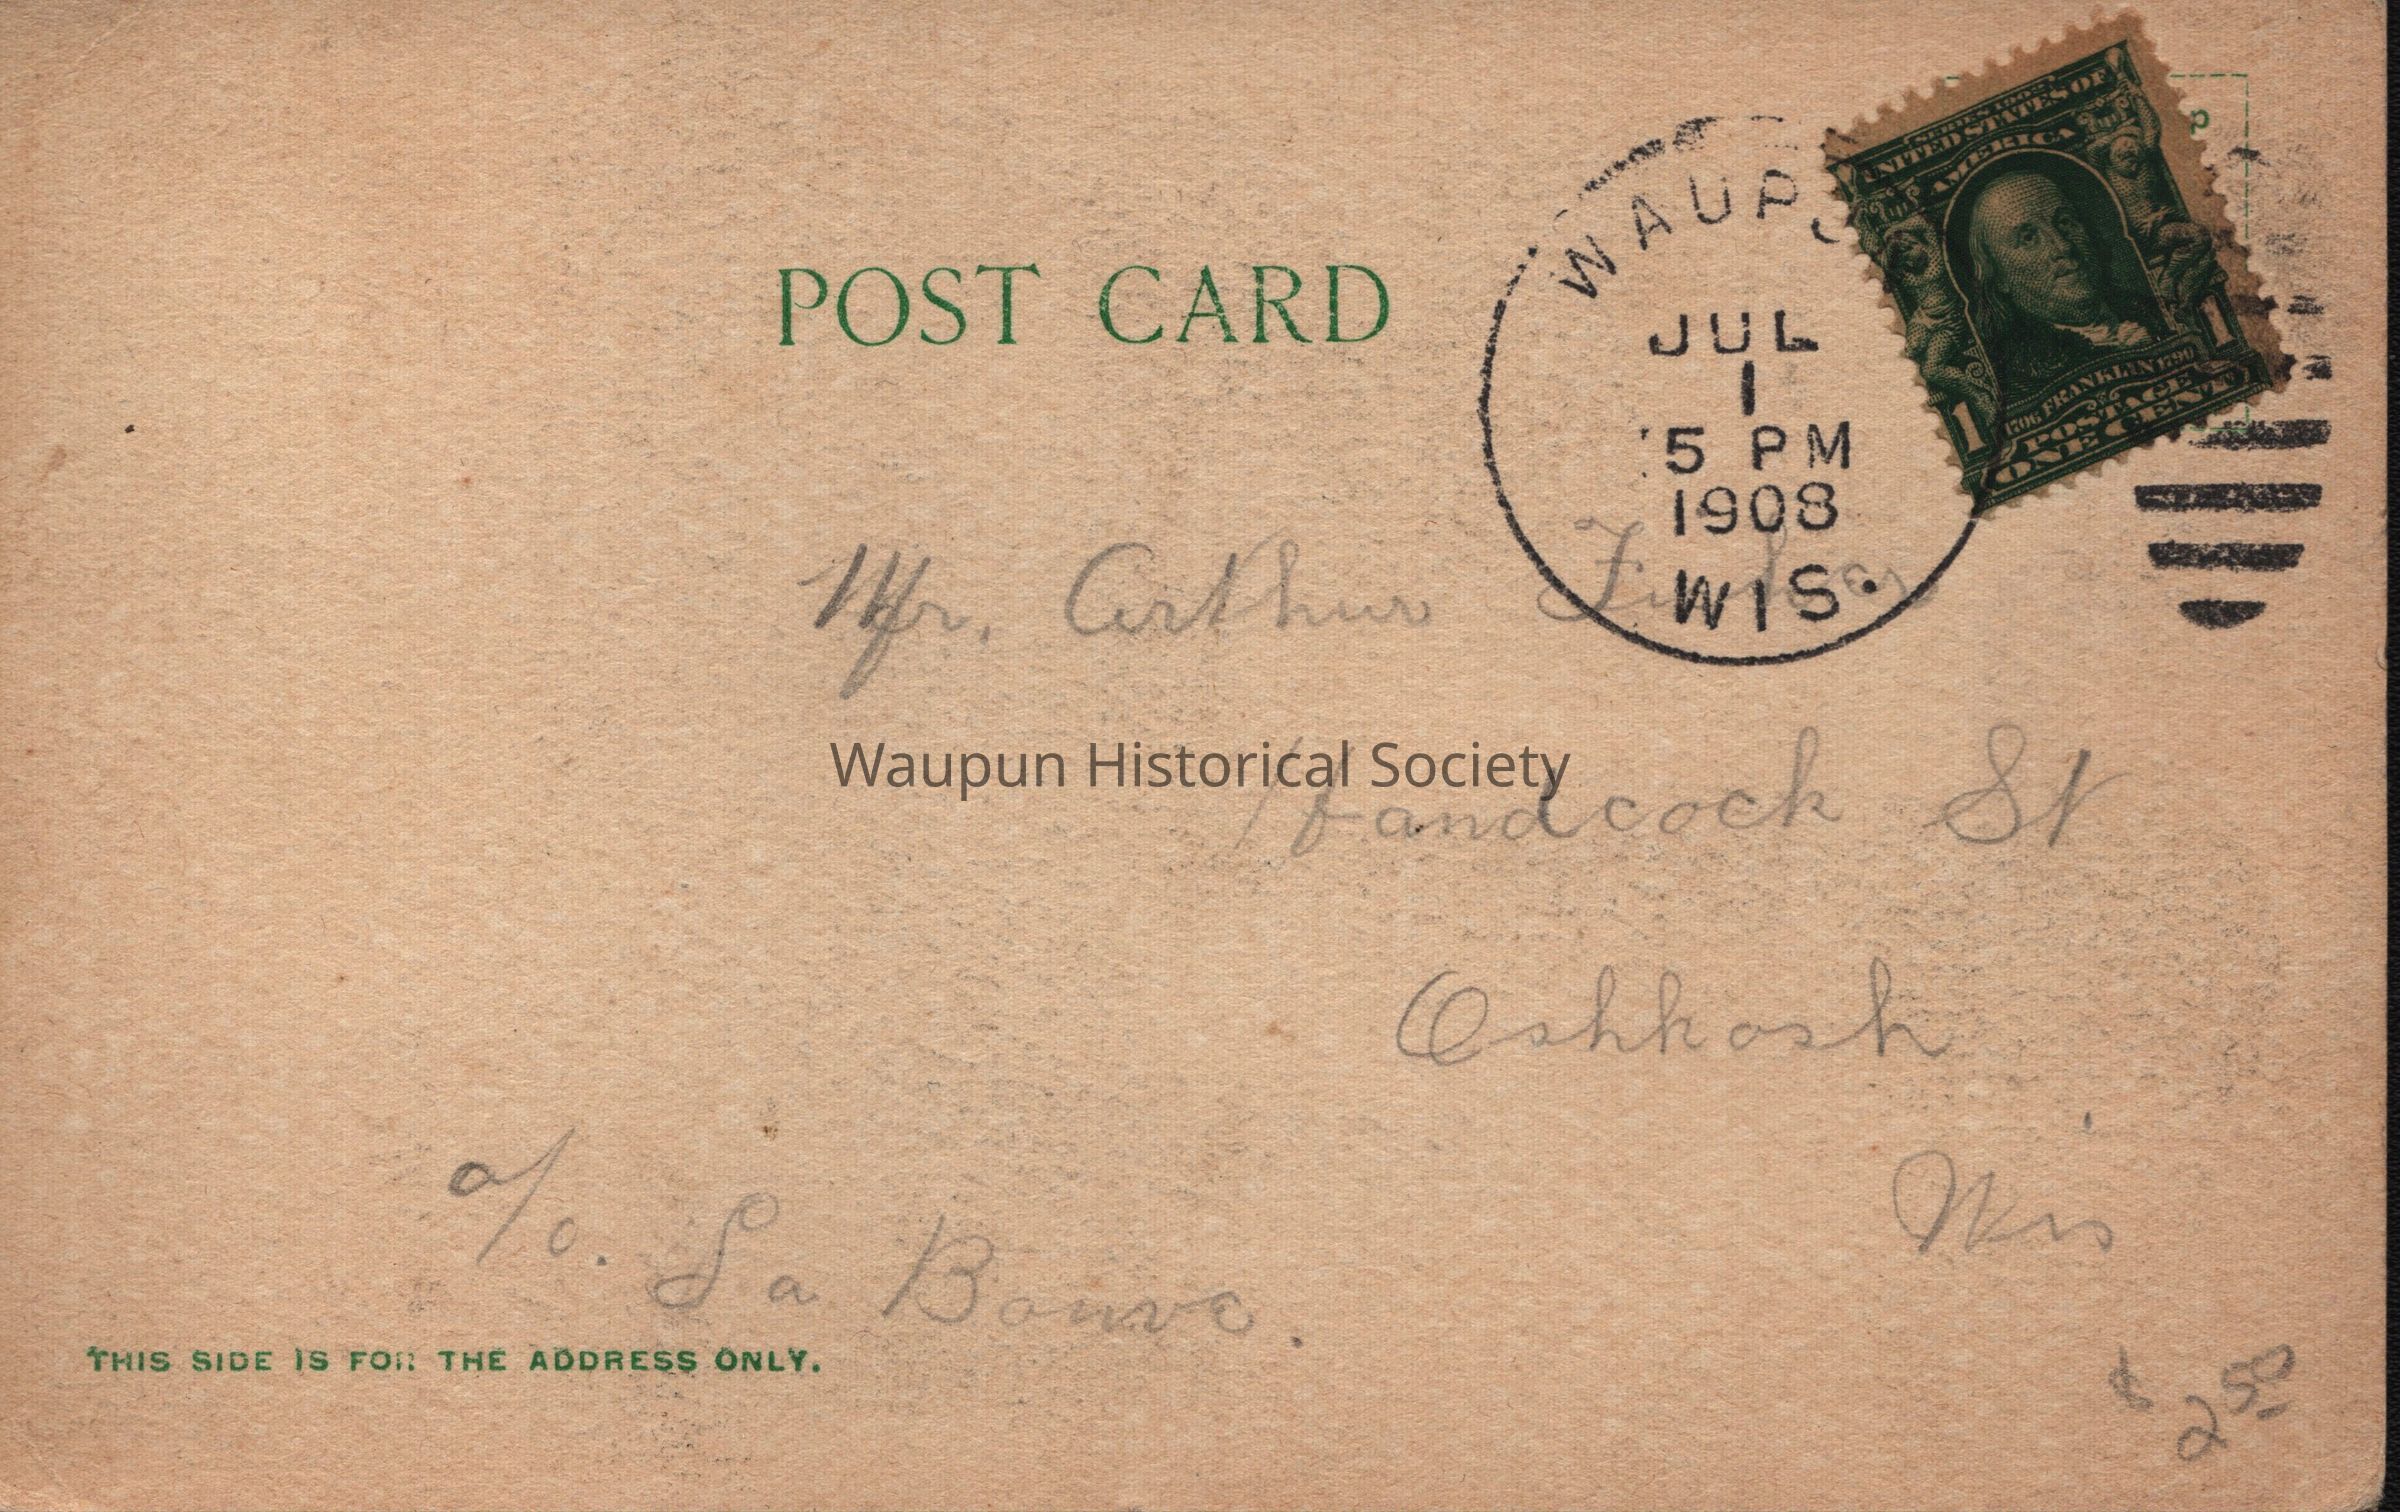 SERIES 1902
UNITED STATES OF
AMERICA
1706 FRANKLIN 1790
1 POSTAGE 1
ONE CENT
WAUPU
JUL
1
5 PM
1908
WIS.
POST CARD
Mr. Arthur
Handcock St
Oshkosh
Wis
a/o. La Bouve.
THIS SIDE IS FOR THE ADDRESS ONLY.
$ 2.50
Waupun Historical Society